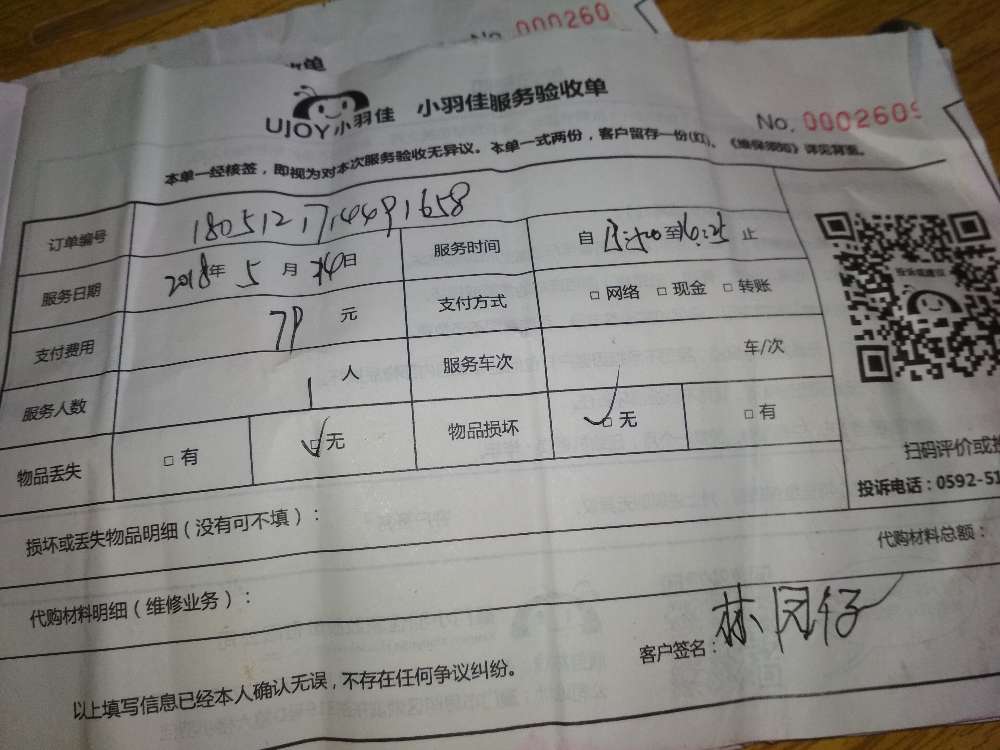 No. 000260
UJOY小羽佳 小羽佳服务验收单
No. 0002609
本单一经核签，即视为对本次服务验收无异议。本单一式两份，客户留存一份(红)。《维保须知》详见背面。
订单编号 1805121714491658 服务时间 自 至16:25止
服务日期 2018年5月14日 支付方式 □ 网络 □ 现金 □ 转账
支付费用 79 元 服务车次 车/次
服务人数 1 人
物品丢失 □ 有 ✓□ 无 物品损坏 ✓□ 无 □ 有
投诉或建议
扫码评价或投
投诉电话：0592-51
损坏或丢失物品明细（没有可不填）：
代购材料明细（维修业务）： 代购材料总额：
以上填写信息已经本人确认无误，不存在任何争议纠纷。 客户签名：林